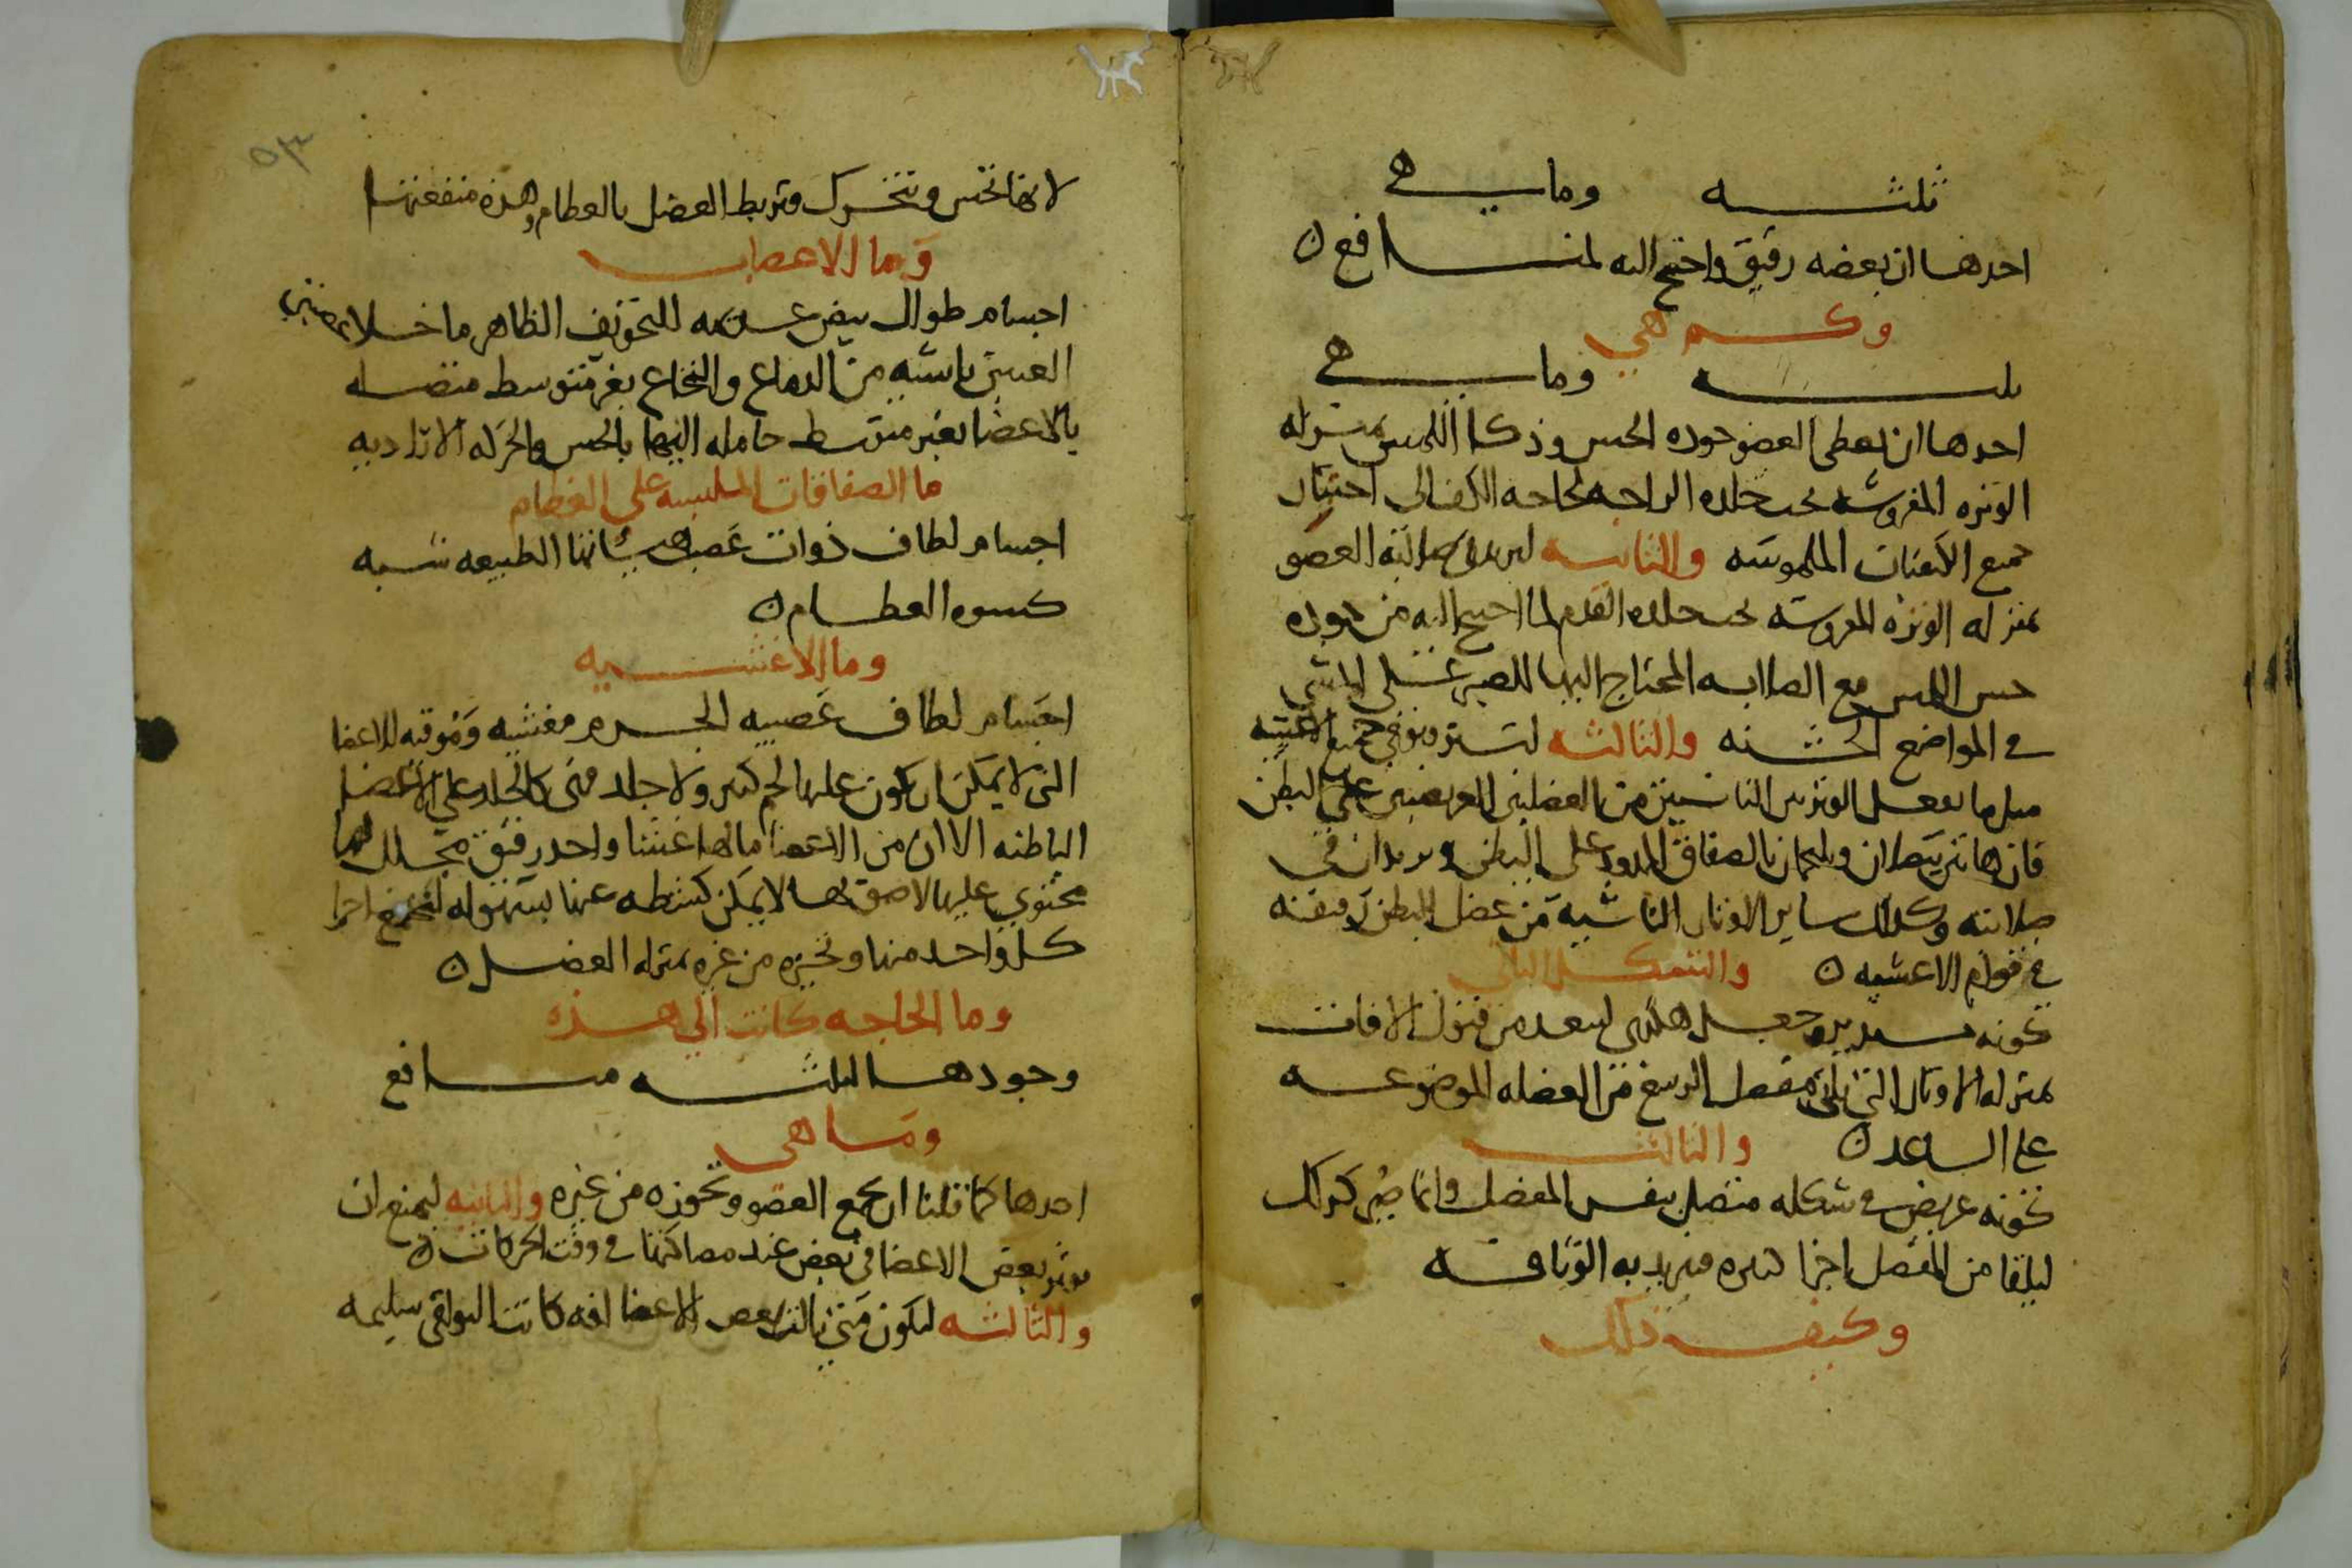 ثلثه وما هي
احدها ان بعضه رقيق واحتيج اليه لمنافع
وكم هي
ثلثه وما هي
احدها ان يعطى العضو جوده الحس وذكا اللمس بمنزله
الوتره المفروشه تحت جلده الراحه لحاجه الكف الى اختبار
جميع الكيفيات الملموسه والثانيه ليزيد في صلابه العضو
بمنزله الوتره المفروشه تحت جلده القدم لما احتيج اليه من جوده
حس اللمس مع الصلابه المحتاج اليها للصبر على المشي
في المواضع الخشنه والثالثه لتستر وتوقي جميع الاغشيه
مثل ما يفعل الوترين الناشيين من العضلتين العريضتين على البطن
فان هاتين يتصلان ويلتحمان بالصفاق الممدود على البطن ويزيدان في
صلابته وكذلك ساير الاوتار الناشيه من عضل البطن رقيقه
في قوام الاغشيه والشكل الثاني
كونه مستدير وجعل هكذى ليبعد من قبول الافات
بمنزله الاوتار التي تلي مفصل الرسغ من العضله الموضوعه
على الساعد والثالث
كونه عريض في شكله متصل بنفس المفصل وانما صير كذلك
ليلقا من المفصل اجزا كثيره فيزيد به الوثاقه
وكيف ذلك
لانها تحس وتتحرك وتربط العضل بالعظام وهذه منفعتها
وما الاعصاب
اجسام طوال بيض عديمه للتجويف الظاهر ما خلا عصبتي
العينين ناشيه من الدماغ والنخاع بغير متوسط متصله
بالاعضا بغير متوسط حامله اليها بالحس والحركه الاراديه
ما الصفاقات الملبسه على العظام
اجسام لطاف ذوات عصب هيأتها الطبيعه شبه
كسوه العظام
وما الاغشيه
اجسام لطاف عصبيه الجرم مغشيه وموقيه للاعضا
التي لا يمكن ان يكون عليها لحم كثير ولا جلد فهى كالجلد على الاعضا
الباطنه الا ان من الاعضا ما لها غشا واحد رقيق مجلل لها
محتوي عليها لاصق بها لا يمكن كشطه عنها بسهوله لتجمع اجزا
كل واحد منها وتحيزه من غيره بمنزله العضل
وما الحاجه كانت الي هذه
وجودها لثلثه منافع
وما هي
احدها كما قلنا ان تجمع العضو وتحوزه من غيره والثانيه ليمنع ان
يوثر بعض الاعضا في بعض عند مصاكتها في وقت الحركات
والثالثه ليكون متى نالت بعض الاعضا افه كانت البواقي سليمه